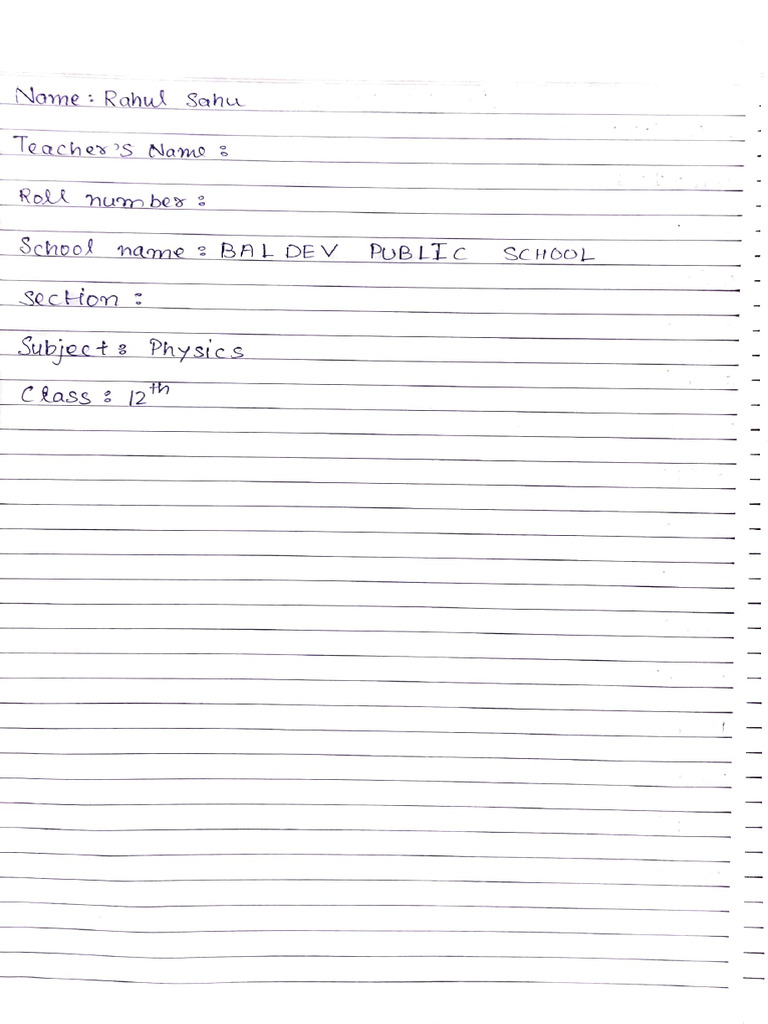 Name: Rahul Sahu
Teacher's Name:
Roll number:
School name: BALDEV PUBLIC SCHOOL
section:
Subject: Physics
Class: 12th